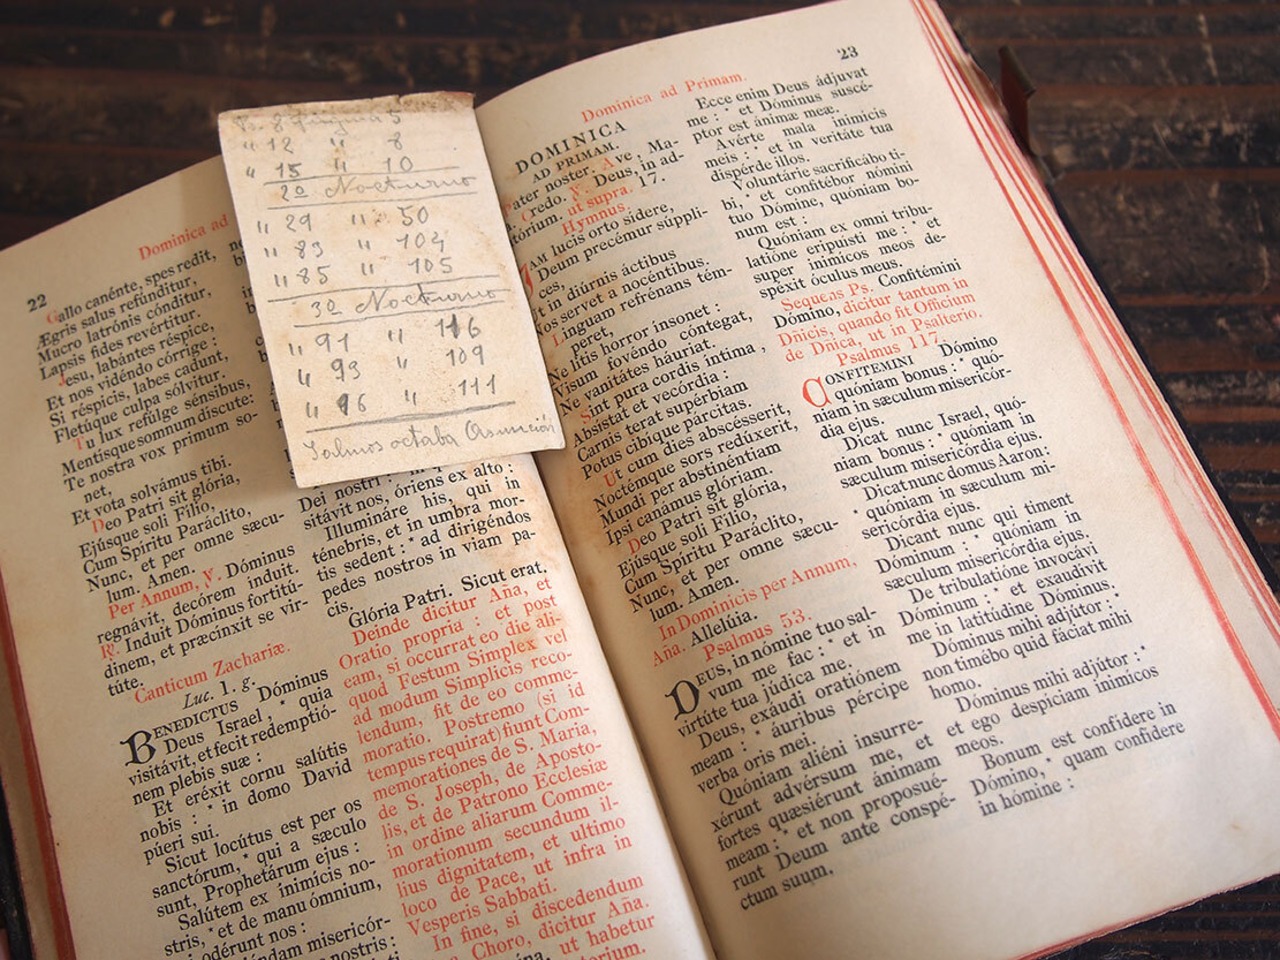 22
Dominica ad
Gallo canénte, spes redit,
Ægris salus refúnditur,
Mucro latrónis cónditur,
Lapsis fides revértitur.
Jesu, labántes réspice,
Et nos vidéndo córrige :
Si réspicis, labes cadunt,
Fletúque culpa sólvitur.
Tu lux refúlge sénsibus,
Mentisque somnum discute:
Te nostra vox primum so-
net,
Et vota solvámus tibi.
Deo Patri sit glória,
Ejúsque soli Fílio,
Cum Spíritu Paráclito,
Nunc, et per omne sæcu-
lum. Amen.
Per Annum, ℣. Dóminus
regnávit, decórem índuit.
℟. Induit Dóminus fortitú-
dinem, et præcinxit se vir-
túte.
Canticum Zachariæ.
Luc. 1. g.
BENEDICTUS Dóminus
Deus Israel, * quia
visitávit, et fecit redemptió-
nem plebis suæ :
Et eréxit cornu salútis
nobis : * in domo David
púeri sui.
Sicut locútus est per os
sanctórum, * qui a sæculo
sunt, Prophetárum ejus :
Salútem ex inimícis no-
stris, * et de manu ómnium,
odérunt nos :
misericór-
nostris :
" 12 " 8
" 15 " 10
2º Nocturno
" 29 " 50
" 83 " 104
" 85 " 105
3º Nocturno
" 91 " 116
" 93 " 109
" 96 " 111
Salmos octaba Asunción
Dei nostri : * in qu
sitávit nos, óriens ex alto :
Illumináre his, qui in
ténebris, et in umbra mor-
tis sedent : * ad dirigéndos
pedes nostros in viam pa-
cis.
Glória Patri. Sicut erat.
Deinde dicitur Aña, et
Oratio propria : et post
eam, si occurrat eo die ali-
quod Festum Simplex vel
ad modum Simplicis reco-
lendum, fit de eo comme-
moratio. Postremo (si id
tempus requirat) fiunt Com-
memorationes de S. Maria,
de S. Joseph, de Aposto-
lis, et de Patrono Ecclesiæ
in ordine aliarum Comme-
morationum secundum il-
lius dignitatem, et ultimo
loco de Pace, ut infra in
Vesperis Sabbati.
In fine, si discedendum
Choro, dicitur Aña.
ut habetur
torium.
23
Dominica ad Primam.
DOMINICA
AD PRIMAM.
Pater noster. Ave Ma-
Credo. ℣. Deus, in ad-
tórium. ut supra, 17.
Hymnus.
JAM lucis orto sídere,
Deum precémur súppli-
ces,
Ut in diúrnis áctibus
Nos servet a nocéntibus.
Linguam refrénans tém-
peret,
Ne litis horror insonet :
Visum fovéndo cóntegat,
Ne vanitátes háuriat.
Sint pura cordis íntima,
Absistat et vecórdia :
Carnis terat supérbiam
Potus cibíque párcitas.
Ut cum dies abscésserit,
Noctémque sors redúxerit,
Mundi per abstinéntiam
Ipsi canámus glóriam.
Deo Patri sit glória,
Ejúsque soli Fílio,
Cum Spíritu Paráclito,
Nunc, et per omne sæcu-
lum. Amen.
In Dominicis per Annum,
Aña. Allelúia.
Psalmus 53.
DEUS, in nómine tuo sal-
vum me fac : * et in
virtúte tua júdica me.
Deus, exáudi oratiónem
meam : * áuribus pércipe
verba oris mei.
Quóniam aliéni insurre-
xérunt advérsum me, et
fortes quæsiérunt ánimam
meam : * et non proposué-
runt Deum ante conspé-
ctum suum.
Ecce enim Deus ádjuvat
me : * et Dóminus suscé-
ptor est ánimæ meæ.
Avérte mala inimícis
meis : * et in veritáte tua
dispérde illos.
Voluntárie sacrificábo ti-
bi, * et confitébor nómini
tuo Dómine, quóniam bo-
num est :
Quóniam ex omni tribu-
latióne eripuísti me : * et
super inimícos meos de-
spéxit óculus meus.
Sequens Ps. Confitémini
Dómino, dicitur tantum in
Dñicis, quando fit Officium
de Dñica, ut in Psalterio.
Psalmus 117.
CONFITEMINI Dómino
quóniam bonus : * quó-
niam in sæculum misericór-
dia ejus.
Dicat nunc Israel, quó-
niam bonus : * quóniam in
sæculum misericórdia ejus.
Dicat nunc domus Aaron :
* quóniam in sæculum mi-
sericórdia ejus.
Dicant nunc qui timent
Dóminum : * quóniam in
sæculum misericórdia ejus.
De tribulatióne invocávi
Dóminum : * et exaudívit
me in latitúdine Dóminus.
Dóminus mihi adjútor : *
non timébo quid fáciat mihi
homo.
Dóminus mihi adjútor : *
et ego despíciam inimícos
meos.
Bonum est confídere in
Dómino, * quam confídere
in hómine :